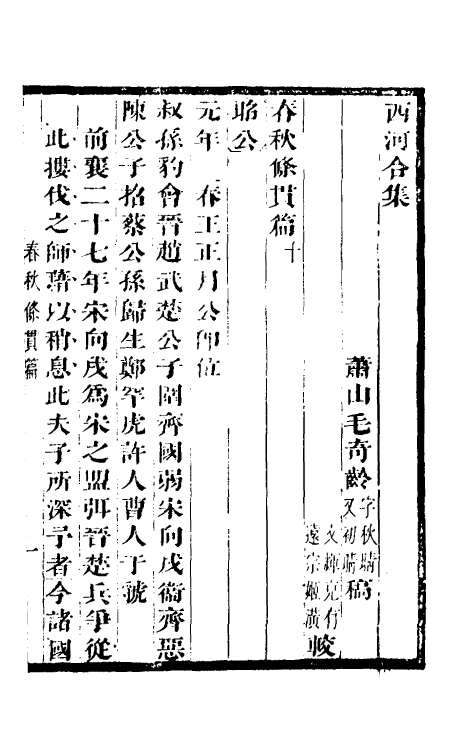 西河合集
蕭山毛奇齡字秋晴又初晴稿
文輝充有
遠宗姬潢 較
春秋條貫篇十
昭公
元年 春王正月公卽位
叔孫豹會晉趙武楚公子圍齊國弱宋向戌衞齊惡
陳公子招蔡公孫歸生鄭罕虎許人曹人于虢
前襄二十七年宋向戌爲宋之盟弭晉楚兵爭從
此摟伐之師藉以稍息此夫子所深予者今諸國
春秋條貫篇 一